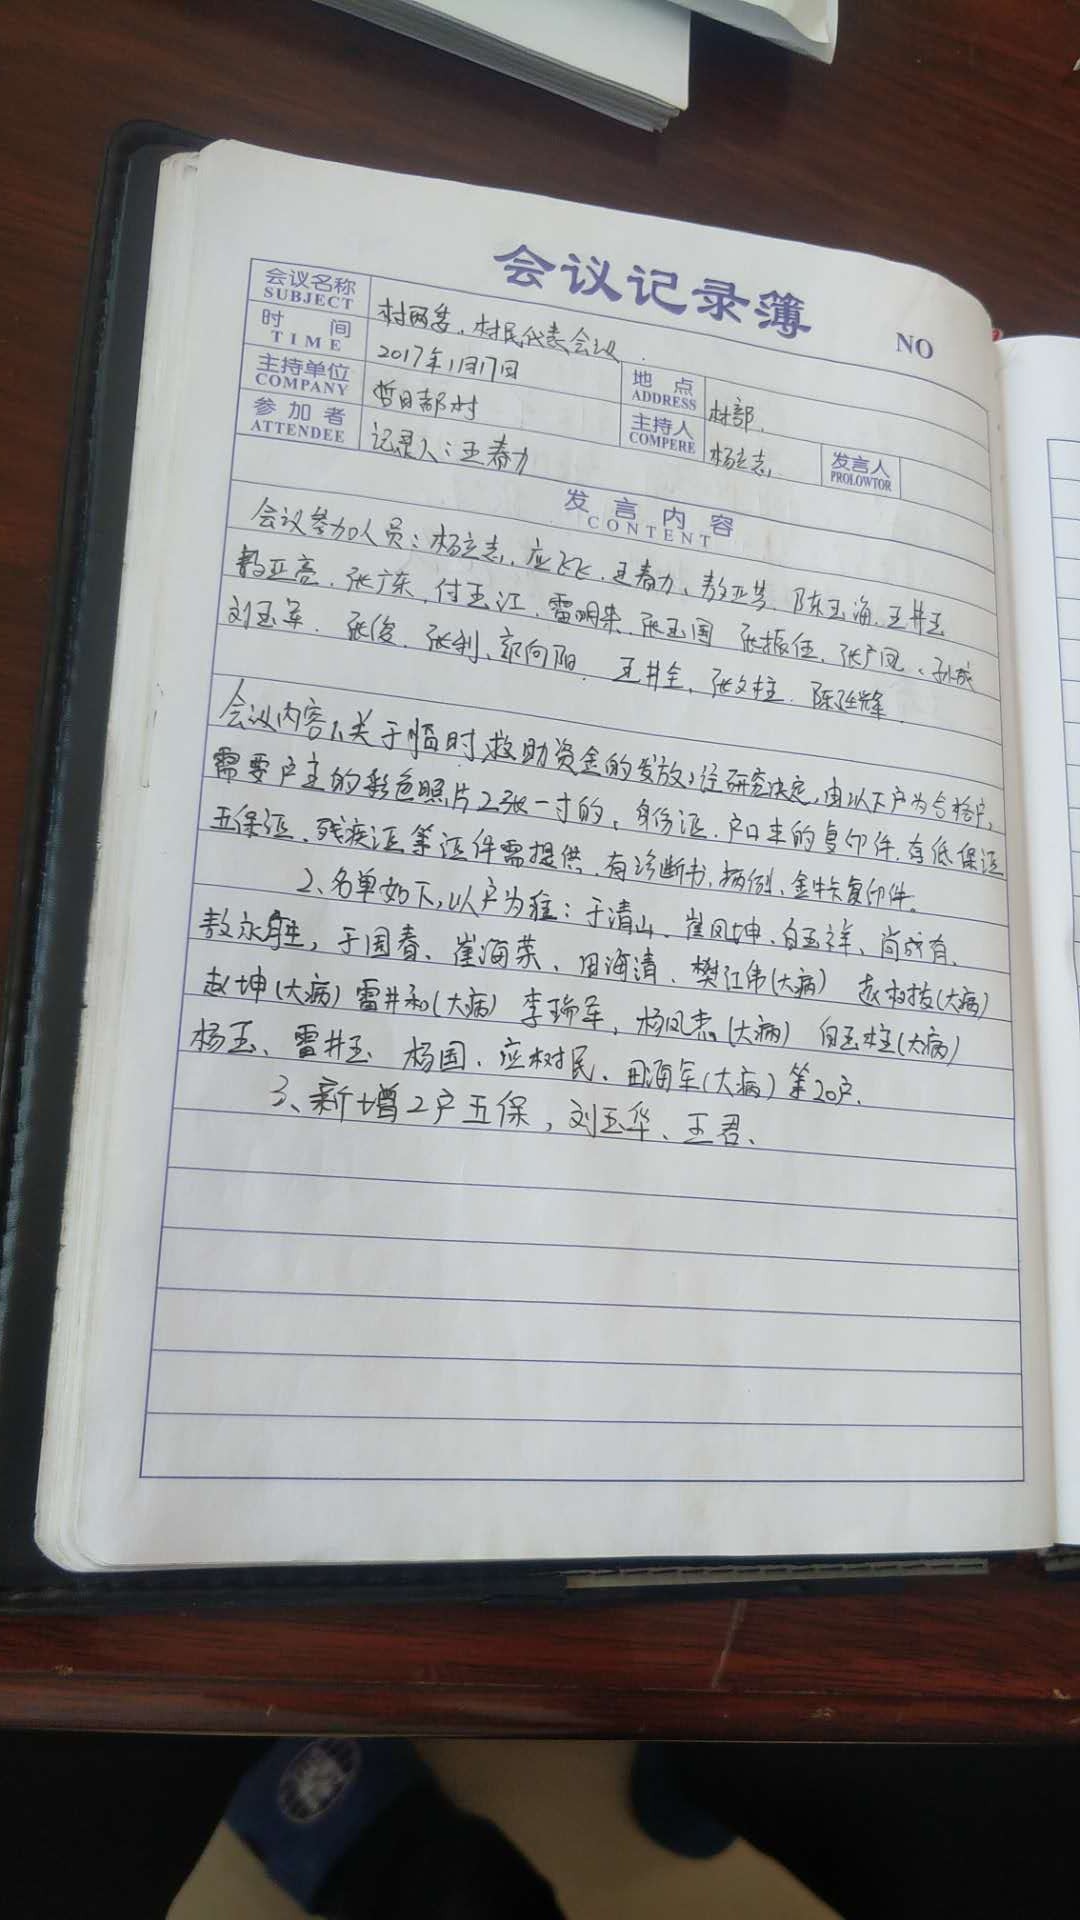 会议记录簿
NO
会议名称 村两委、村民代表会议
SUBJECT
时间 2017年11月17日
TIME
地点 村部.
ADDRESS
主持单位 哲日部村
COMPANY
主持人 杨立志.
COMPERE
发言人
PROLOWTOR
参加者 记录人：王春力
ATTENDEE
发言内容
CONTENT
会议参加人员：杨立志、应飞飞、王春力、敖亚芬、陈玉海、王井玉
敖亚亮、张广东、付玉江、雷明朱、张玉国 张振伍、张广凤、孙成
刘玉军、张俊、张利、郭向阳、王井全、张文柱、陈延辉.
会议内容1、关于临时救助资金的发放，经研究决定，由以下户为合格户，
需要户主的彩色照片2张一寸的，身份证、户口本的复印件，有低保证
五保证、残疾证等证件需提供，有诊断书，病例、金牛卡复印件。
2、名单如下，以户为准：于清山、崔凤坤、白玉祥、尚成有、
敖永胜，于国春、崔海荣、田海清、樊江伟(大病) 赵树技(大病)
赵坤(大病) 雷井和(大病) 李瑞军，杨凤杰(大病) 白玉柱(大病)
杨玉、雷井玉 杨国、应树民、田海军(大病)等20户.
3、新增2户五保，刘玉华、王君、